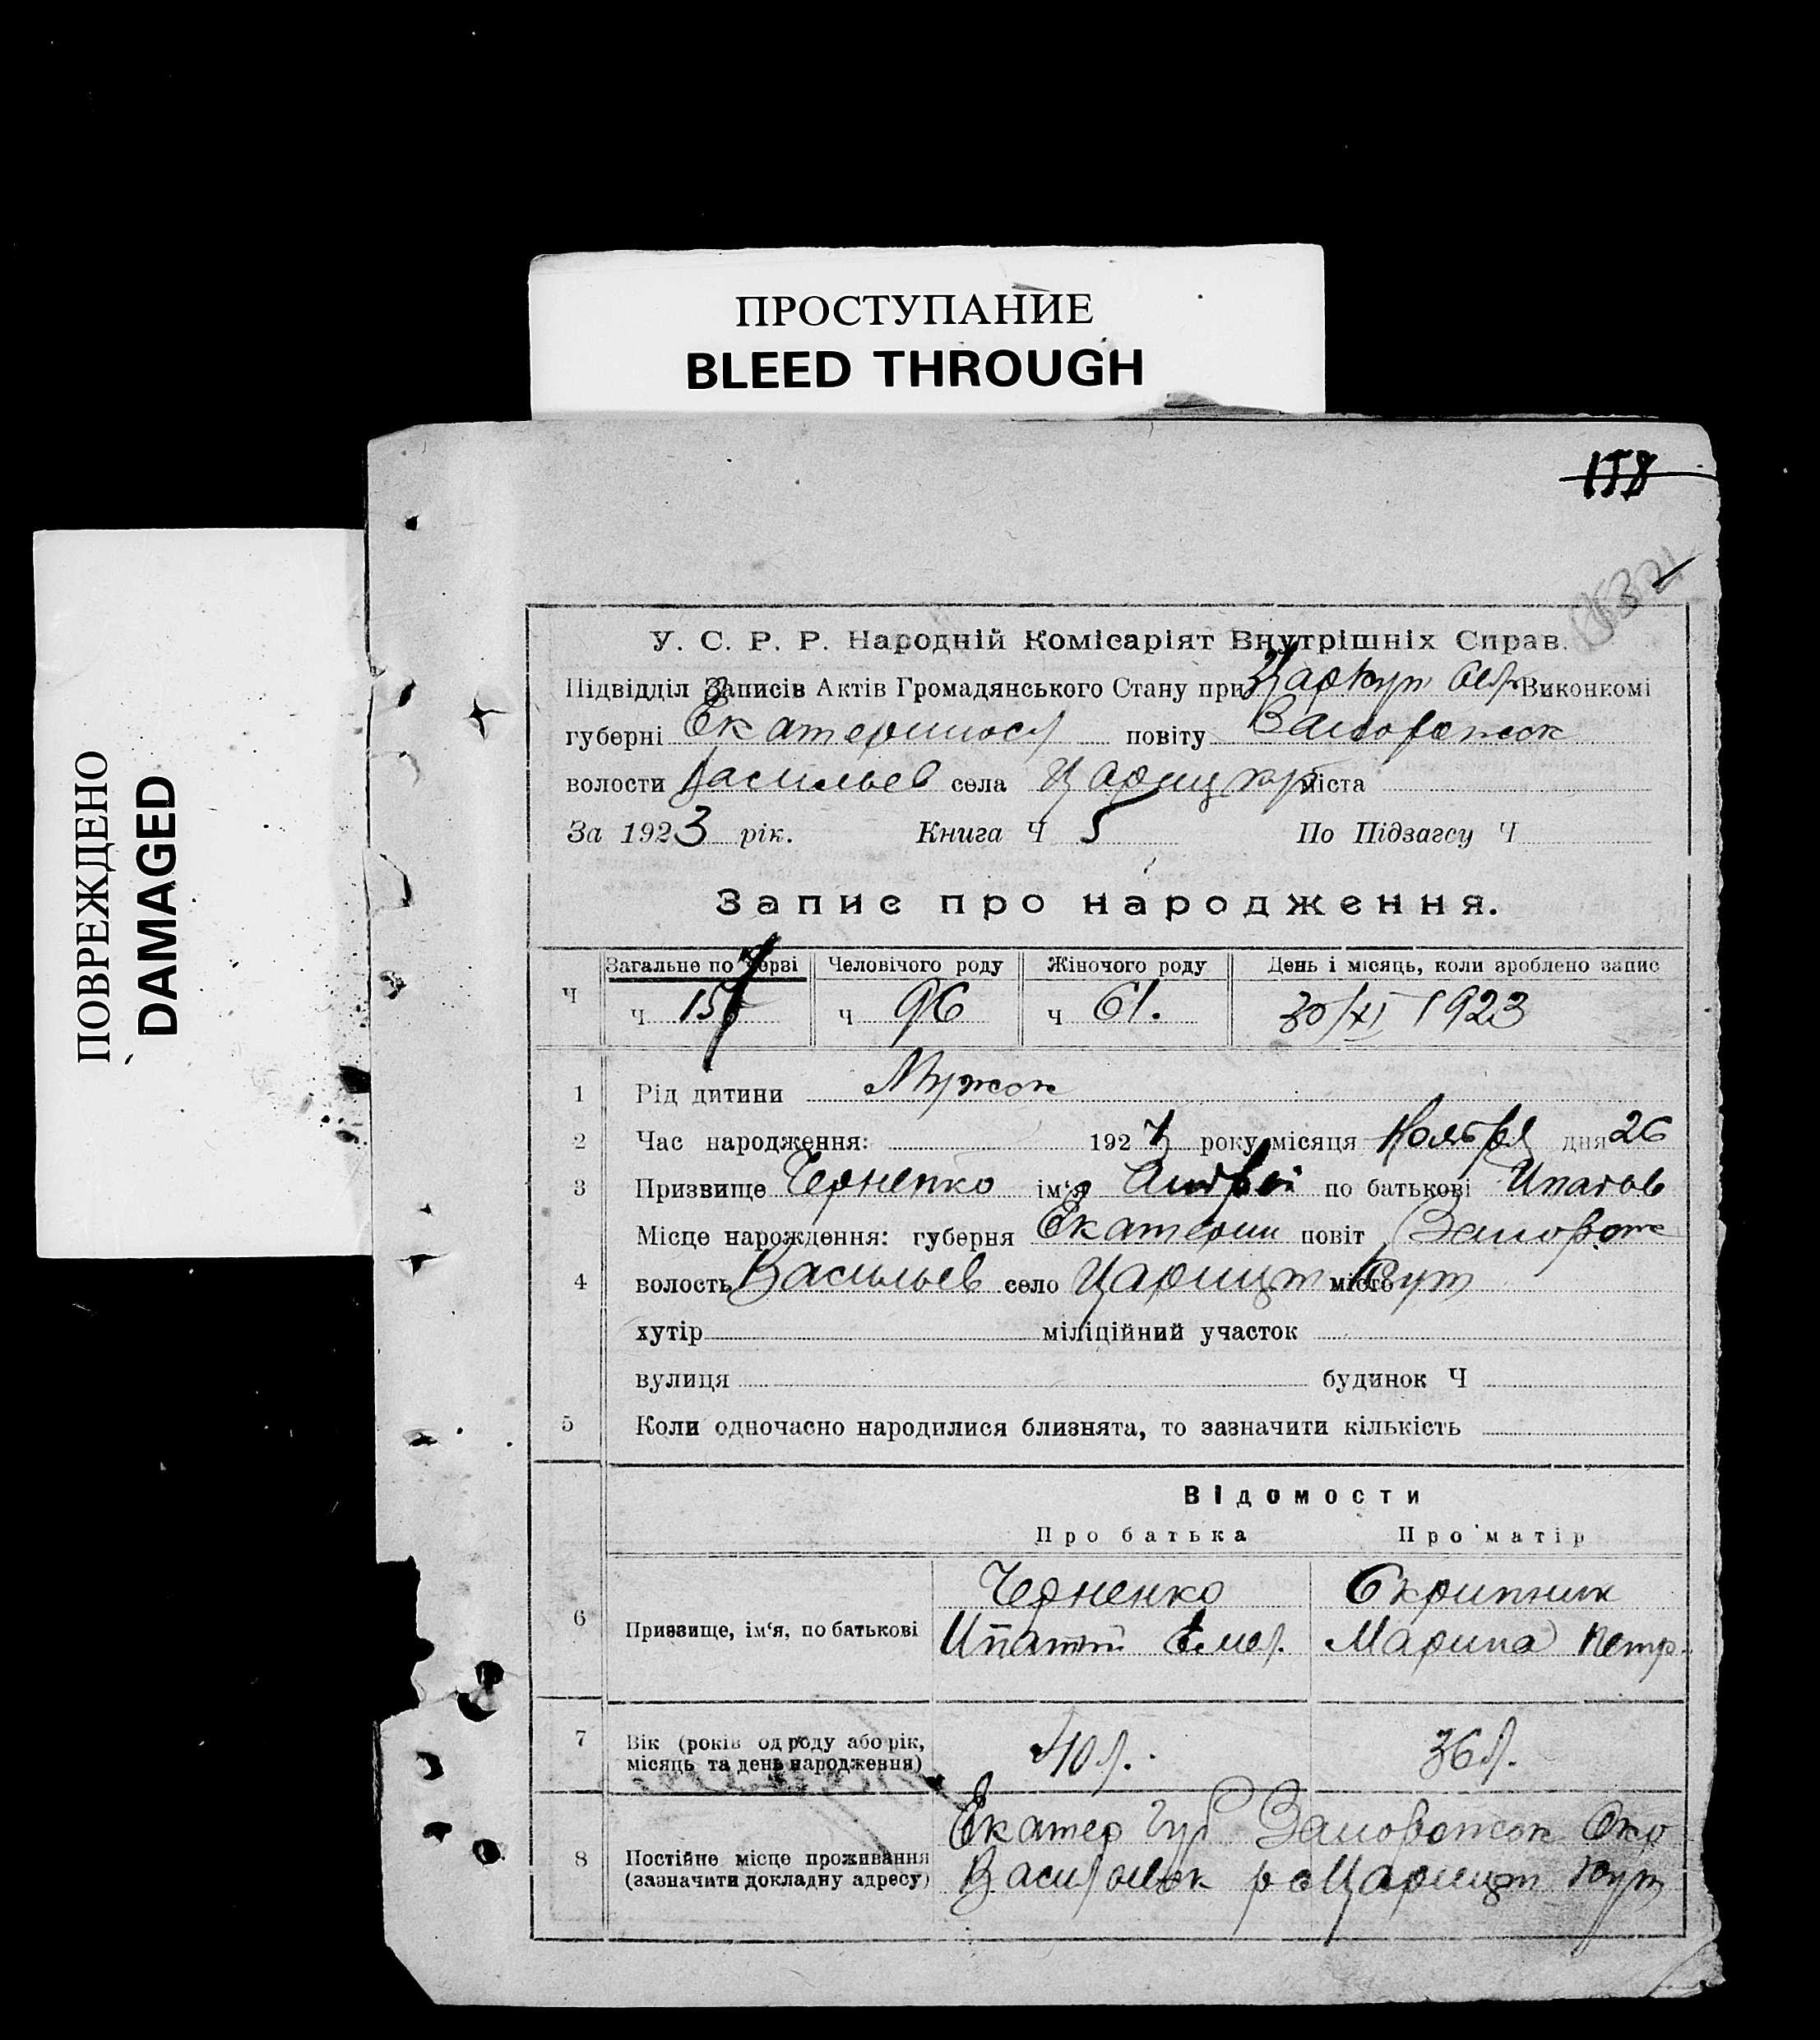 ПРОСТУПАНИЕ
BLEED THROUGH
ПОВРЕЖДЕНО
DAMAGED
158
У. С. Р. Р. Народній Комісаріят Внутрішніх Справ.
Підвідділ Записів Актів Громадянського Стану при Царкут Виконкомі
губерні Екатеринос повіту Запорожск
волости Васильев села Царицкут міста
За 1923 рік. Книга Ч 5 По Підзагсу Ч
Запис про народження.
Ч Загальне по черзі Человічого роду Жіночого роду День і місяць, коли зроблено запис
ч 157 ч 96 ч 61. 30/XI 1923
1 Рід дитини Мужск
2 Час народження: 1923 року місяця Ноября дня 26
3 Призвище Черненко ім'я Андрей по батькові Ипатов
Місце народження: губерня Екатерин повіт Запорож
4 волость Васильев село Царицын місто Кут
хутір міліційний участок
вулиця будинок Ч
5 Коли одночасно народилися близнята, то зазначити кількість
Відомости
Про батька Про матір
6 Призвище, ім'я, по батькові
Черненко Скрипник
Ипатий Емел. Марина Петр.
7 Вік (років од роду або рік, місяць та день народження) 40 л. 36 л.
8 Постійне місце проживання (зазначити докладну адресу)
Екатер Губ Запорожск Окр
Васильевск р с Царицын Кут